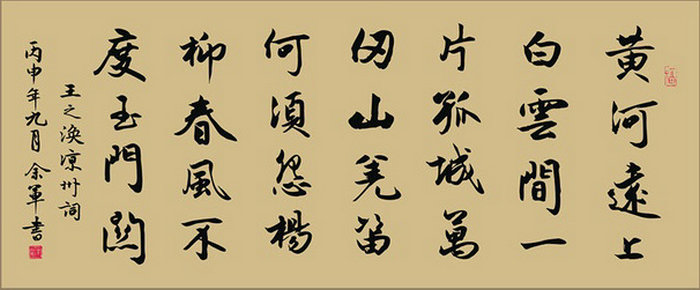 黄河遠上
白雲間一
片孤城萬
仞山羌笛
何須怨楊
柳春風不
度玉門關
王之渙涼州詞
丙申年九月余軍書